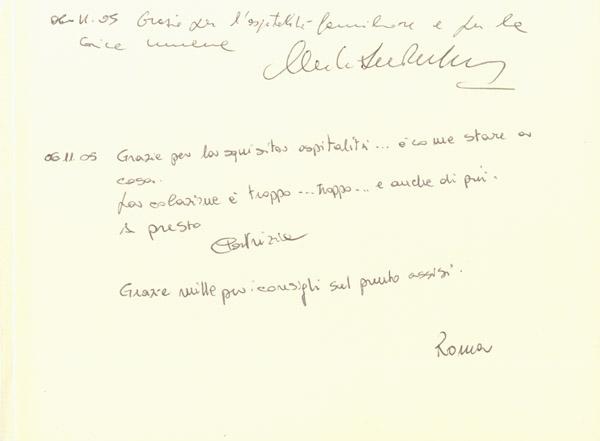 06.11.05 Grazie per l'ospitalità familiare e per la
06.11.05 Grazie per la squisita ospitalità... è come stare a
casa.
La colazione è troppo... troppo... e anche di più.
A presto
Patrizia
Grazie mille per i consigli sul punto assisi.
Roma